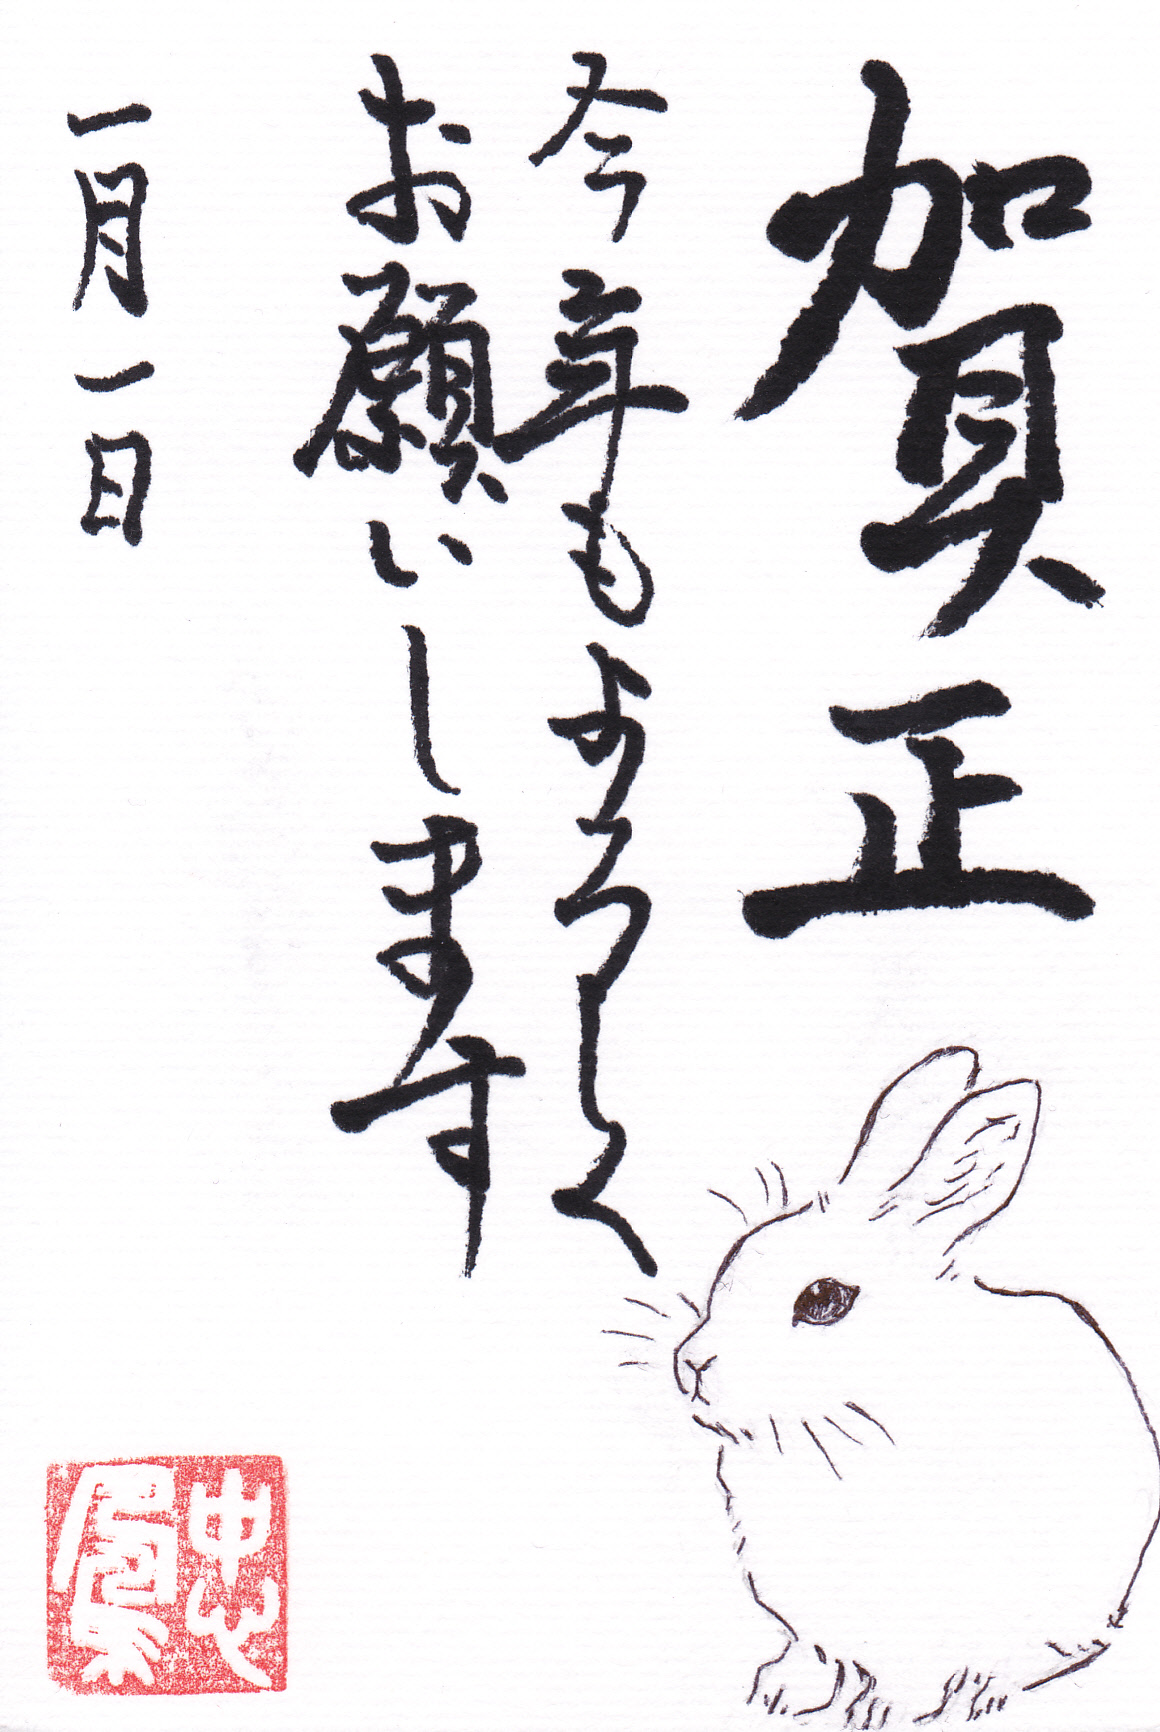 賀正
今年もよろしく
お願いします
一月一日